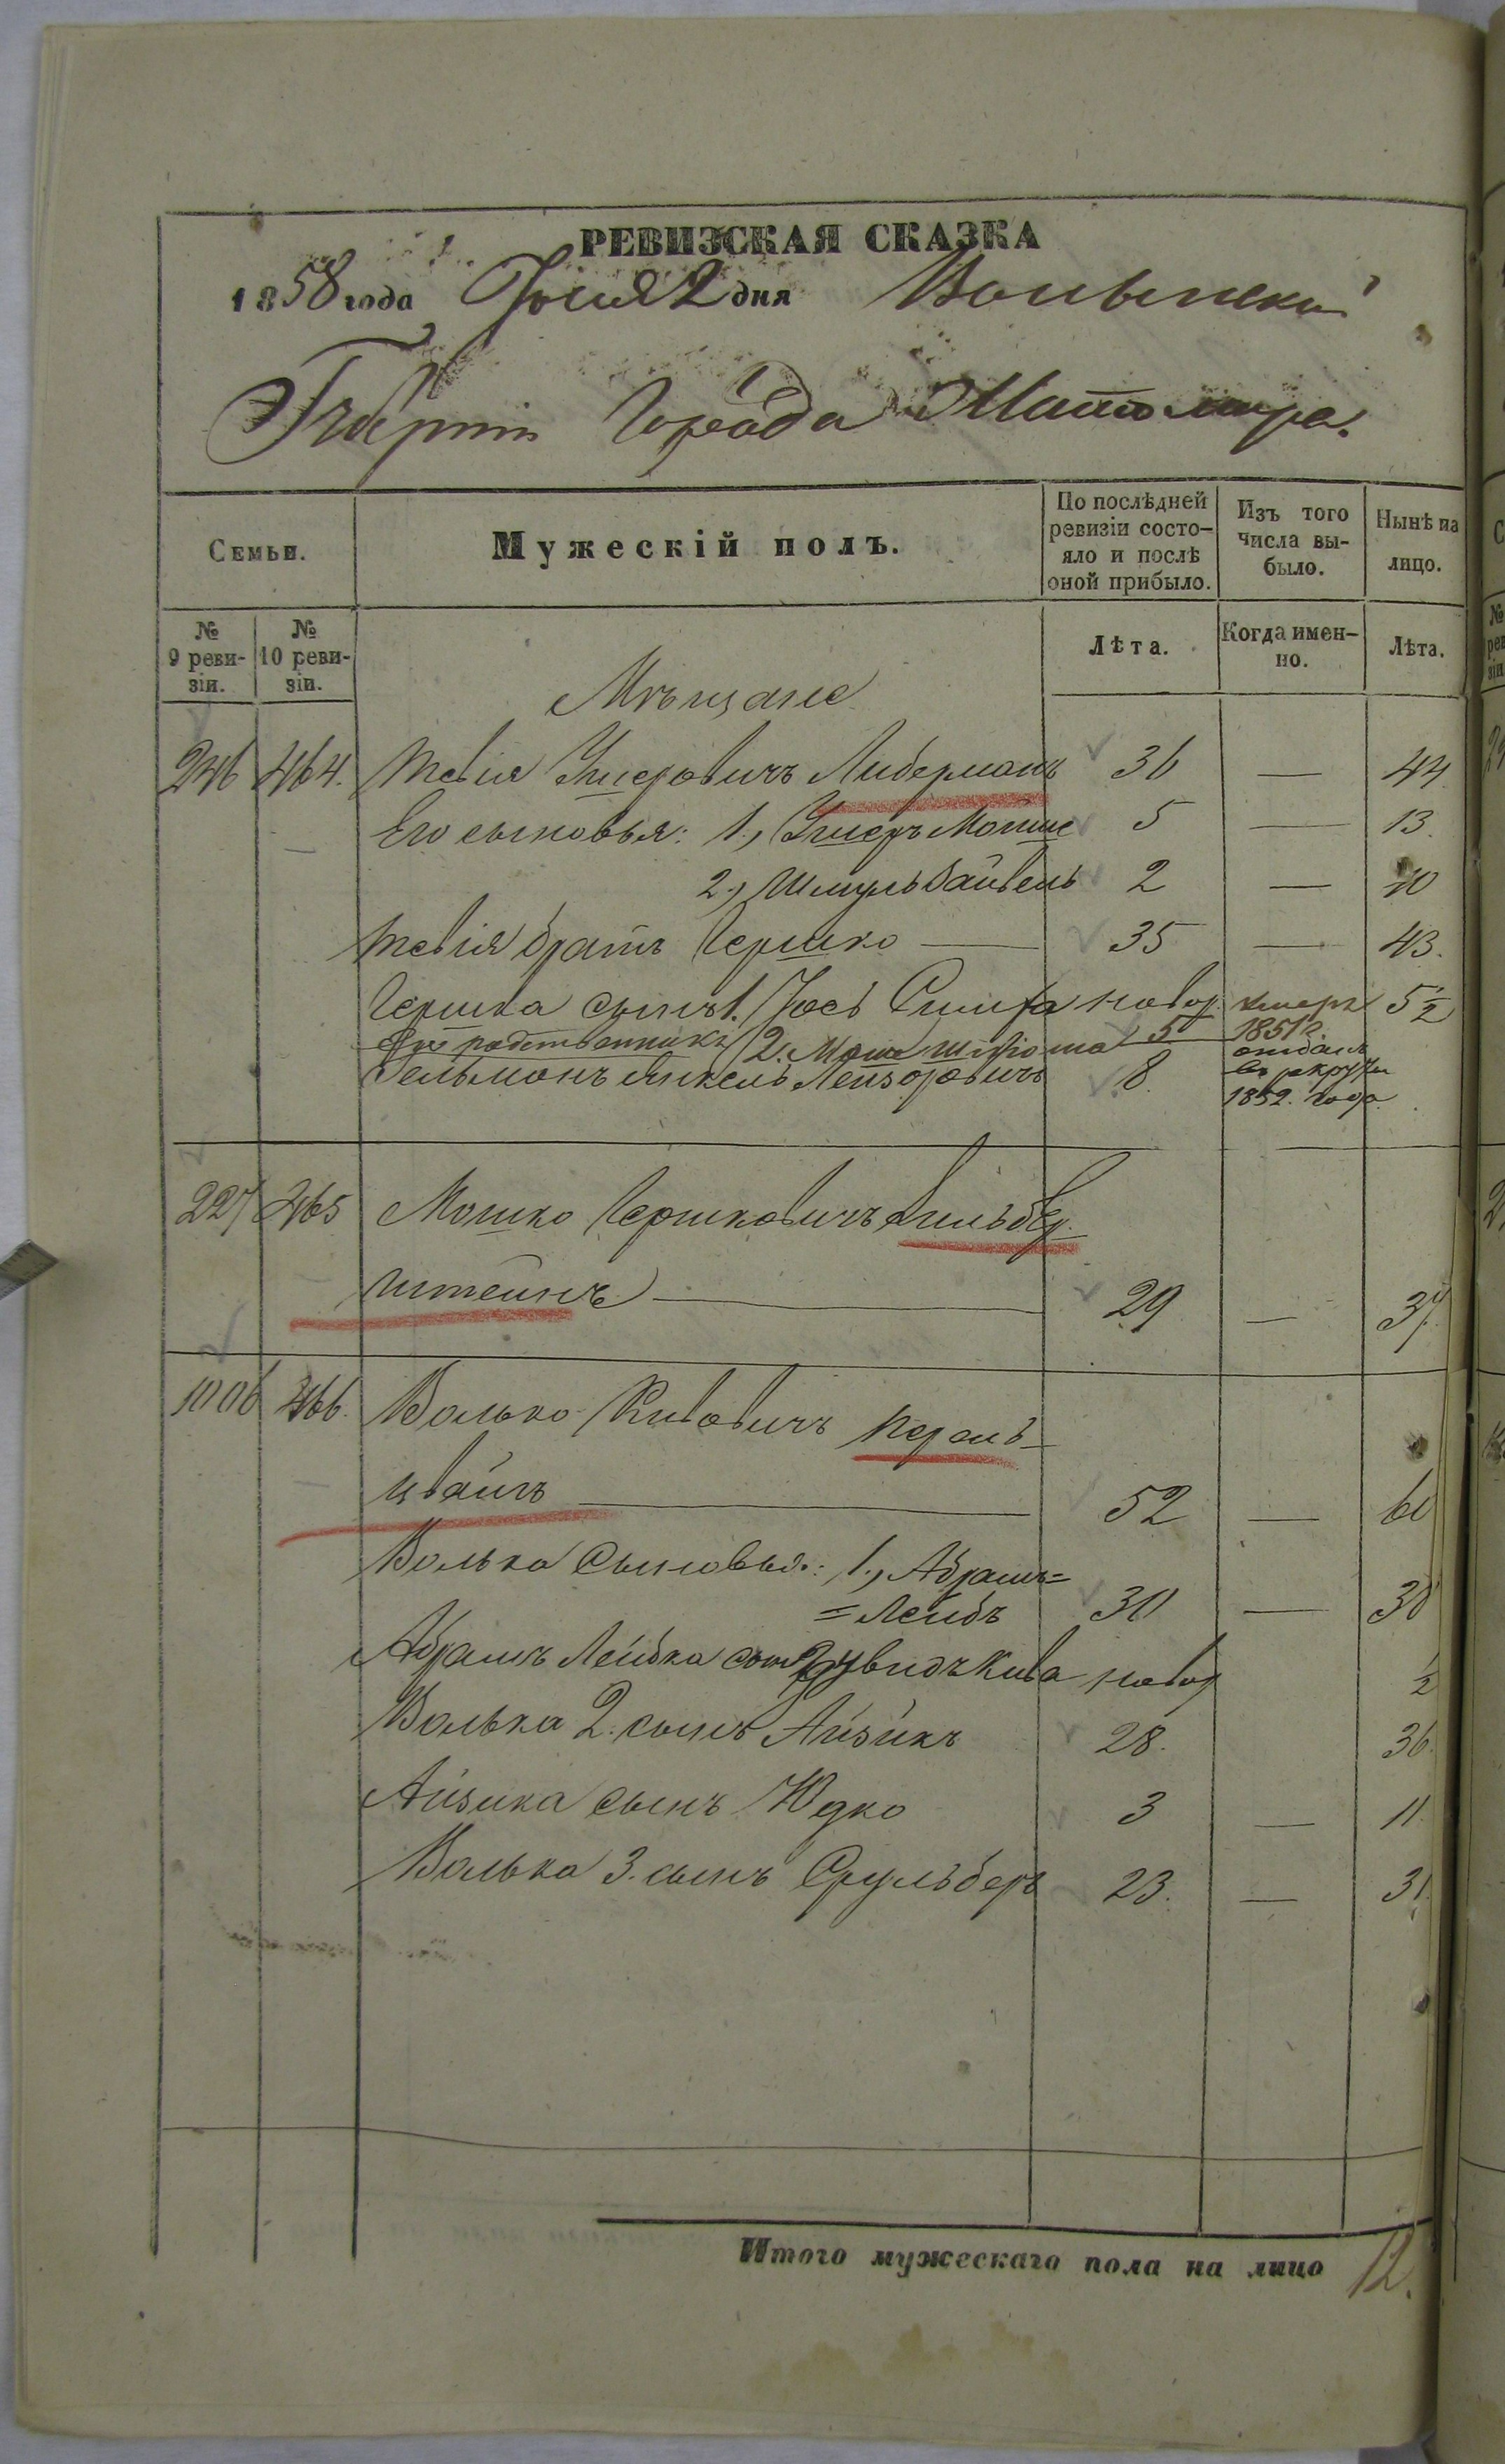 РЕВИЗСКАЯ СКАЗКА
1858 года Іюня 2 дня Волынской
Губерніи Города Житомира.
Семьи.
Мужескій полъ.
По послѣдней ревизіи состо-
яло и послѣ оной прибыло.
Изъ того числа вы-
было.
Нынѣ на лицо.
№ 9 реви-
зіи.
№ 10 реви-
зіи.
Лѣта.
Когда имен-
но.
Лѣта.
Мѣщане
246 464. Тевія Ушеровичъ Либерманъ 36 — 44
Его сыновья: 1., Ушеръ Мошке 5 — 13.
2., Шмуль Вайвель 2 — 10
Тевія братъ Гершко — 35 — 43.
Гершка сынъ 1. Іось Симха новор. 5½
2. Моше Шліома 5 умеръ 1851 г.
Его родственникъ
Гельманъ Янкель Лейзоровичъ 8. отданъ
въ рекруты
1852. года
227 465 Мошко Гершковичъ Гильбер-
штейнъ — 29 — 37.
1006 466. Волько Кивовичъ Перель-
цвайгъ — 52 — 60
Волька Сыновья: 1., Абрамъ=
=Лейбъ 30 — 38
Абрамъ Лейбка сынъ Дувидъ Кива новор ½
Волька 2. сынъ Айзикъ 28. 36.
Айзика сынъ Юдко 3 — 11
Волька 3. сынъ Сруль беръ 23. — 31.
Итого мужескаго пола на лицо 12.